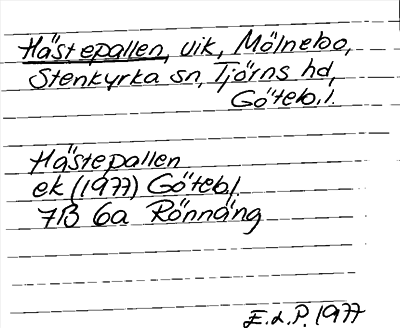 Hästepallen, vik, Mölnebo,
Stenkyrka sn, Tjörns hd,
Göteb.l.
Hästepallen
ek (1977) Göteb.l.
7B 6a Rönnäng
E.d.P. 1977